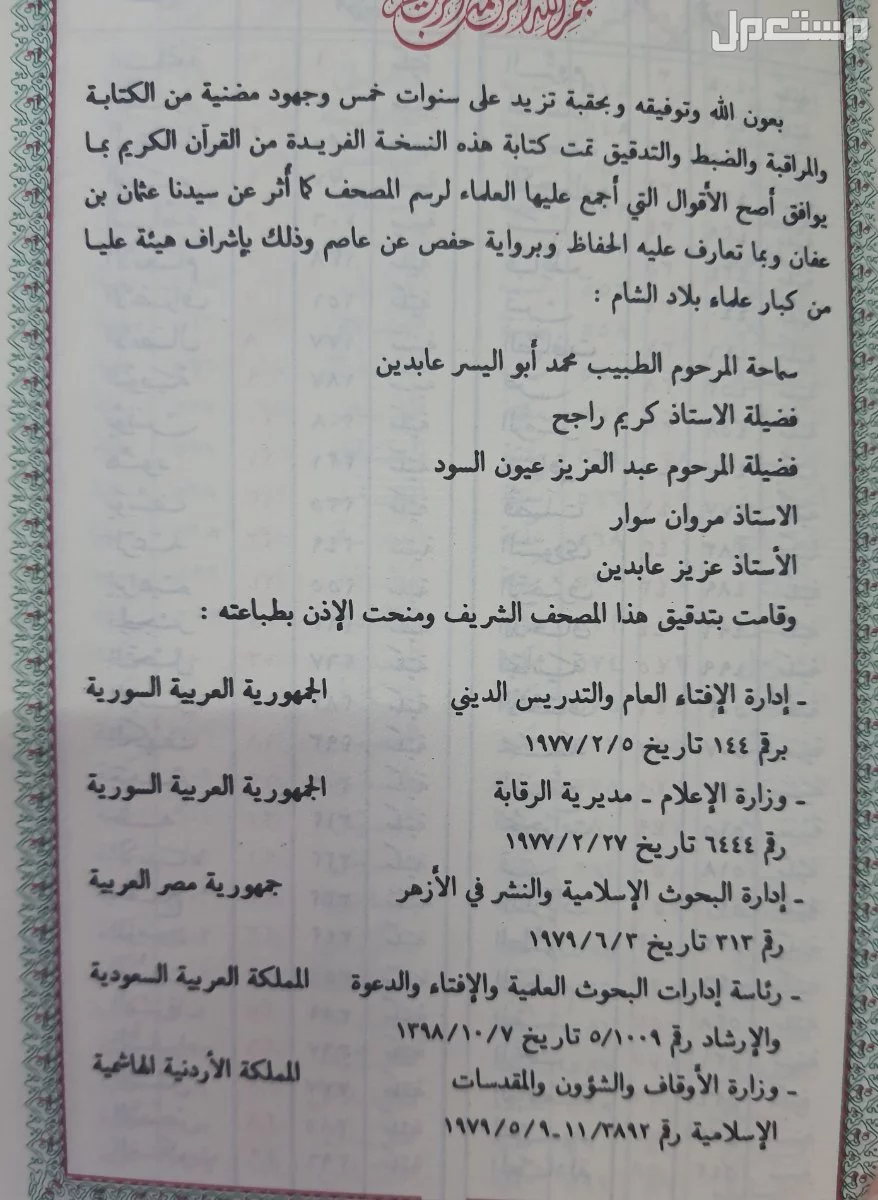 بسم الله الرحمن الرحيم
مستعمل
بعون الله وتوفيقه وبحقبة تزيد على سنوات خمس وجهود مضنية من الكتابة
والمراقبة والضبط والتدقيق تمت كتابة هذه النسخة الفريدة من القرآن الكريم بما
يوافق أصح الأقوال التي أجمع عليها العلماء لرسم المصحف كما أُثر عن سيدنا عثمان بن
عفان وبما تعارف عليه الحفاظ وبرواية حفص عن عاصم وذلك بإشراف هيئة عليا
من كبار علماء بلاد الشام :
سماحة المرحوم الطبيب محمد أبو اليسر عابدين
فضيلة الاستاذ كريم راجح
فضيلة المرحوم عبد العزيز عيون السود
الاستاذ مروان سوار
الأستاذ عزيز عابدين
وقامت بتدقيق هذا المصحف الشريف ومنحت الإذن بطباعته :
ـ إدارة الإفتاء العام والتدريس الديني الجمهورية العربية السورية
برقم ١٤٤ تاريخ ١٩٧٧/٢/٥
ـ وزارة الإعلام ـ مديرية الرقابة الجمهورية العربية السورية
رقم ٦٤٤٤ تاريخ ١٩٧٧/٢/٢٧
ـ إدارة البحوث الإسلامية والنشر في الأزهر جمهورية مصر العربية
رقم ٣١٣ تاريخ ١٩٧٩/٦/٣
ـ رئاسة إدارات البحوث العلمية والإفتاء والدعوة المملكة العربية السعودية
والإرشاد رقم ٥/١٠٠٩ تاريخ ١٣٩٨/١٠/٧
ـ وزارة الأوقاف والشؤون والمقدسات المملكة الأردنية الهاشمية
الإسلامية رقم ١١/٣٨٩٢ـ١٩٧٩/٥/٩